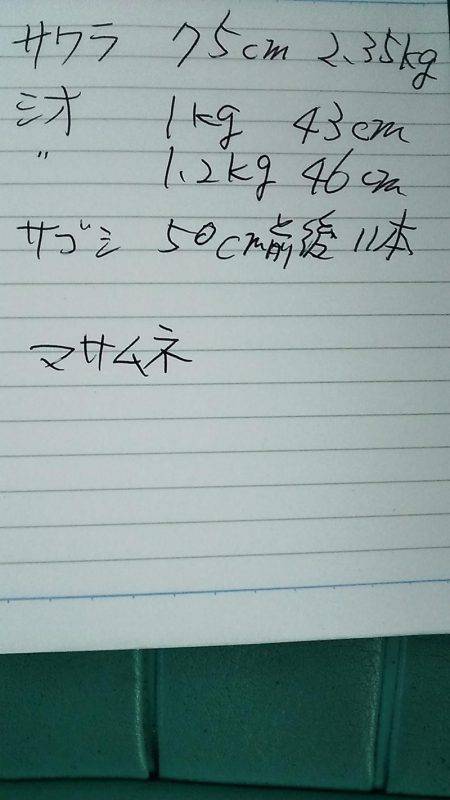 サワラ 75cm 2.35kg
ミオ 1kg 43cm
〃 1.2kg 46cm
サゴシ 50cm前後 11本
マサムネ